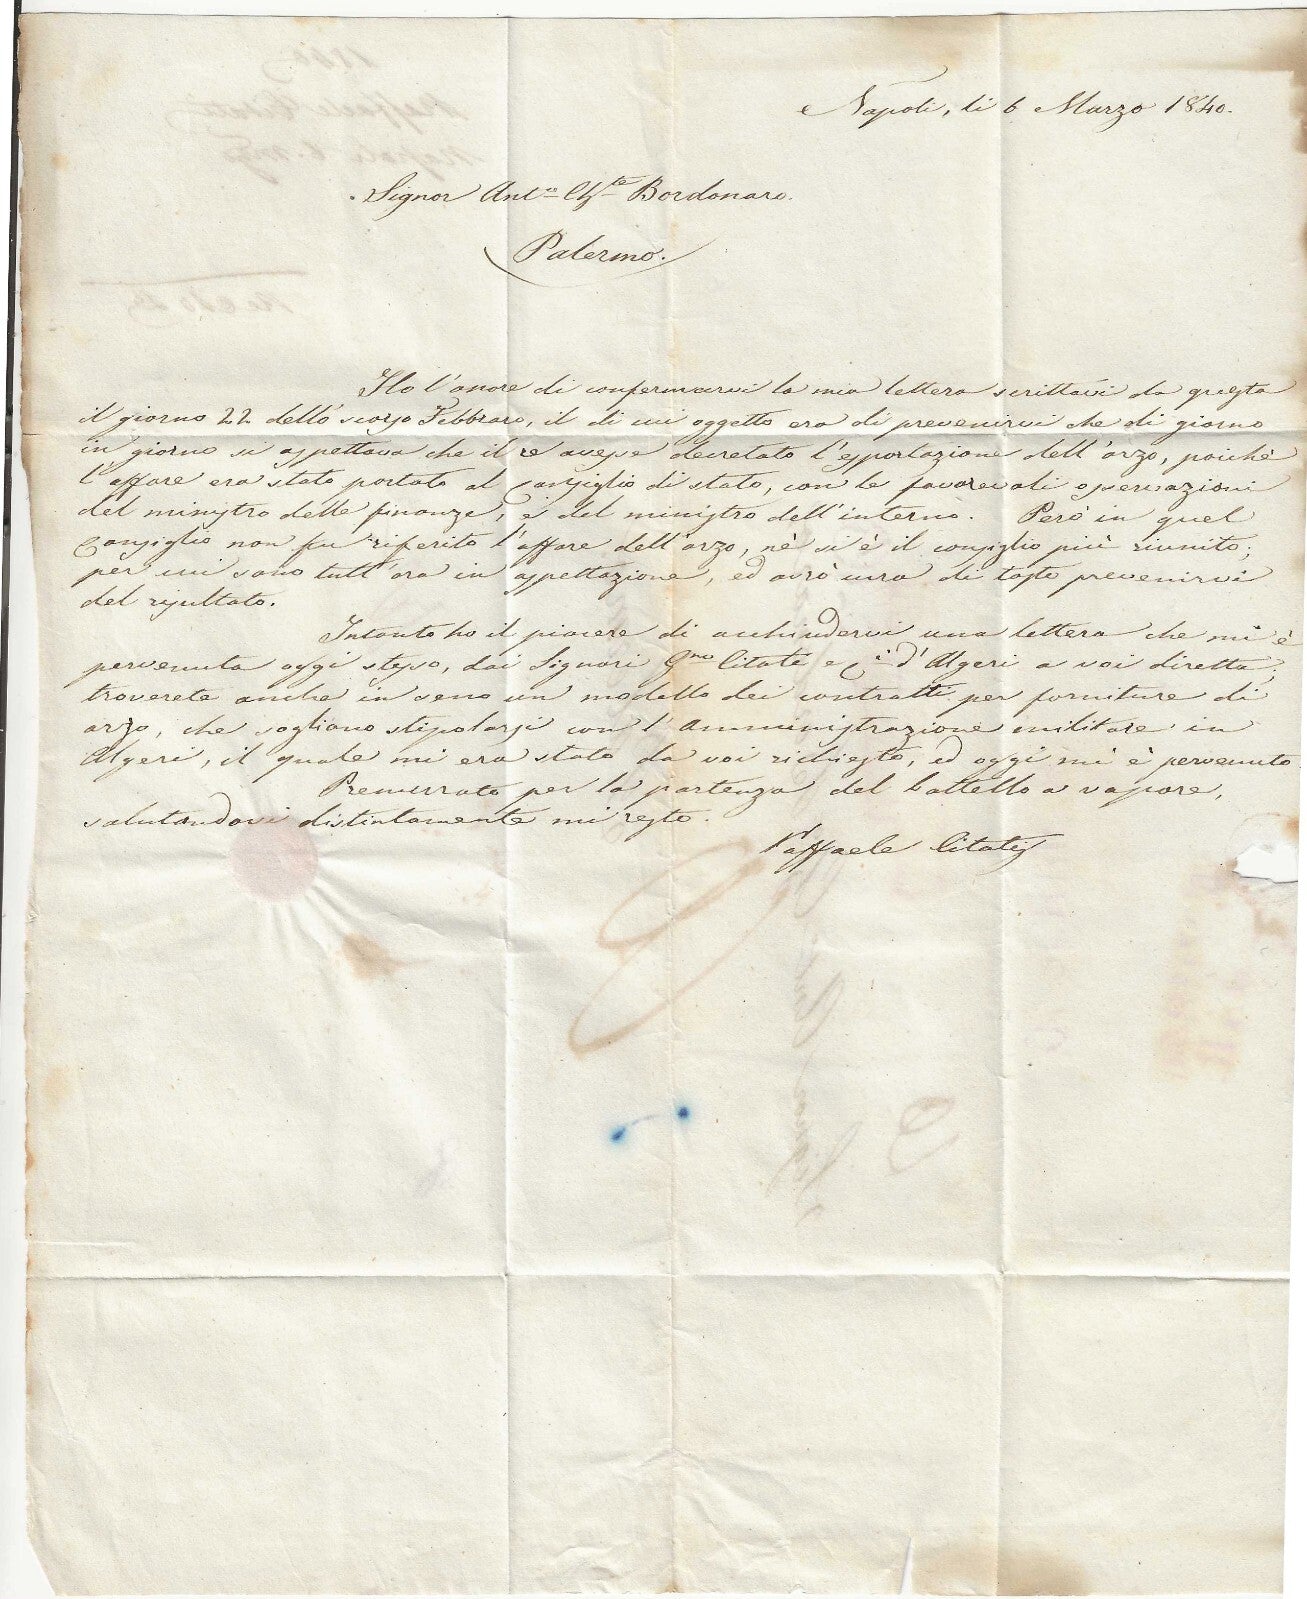 Napoli, li 6 Marzo 1840.
Signor Ant.º Ch.te Bordonaro.
Palermo.
Ho l'onore di confermarvi la mia lettera scrittavi da questa
il giorno 22 dello scorso Febbraro, il di cui oggetto era di prevenirvi che di giorno
in giorno si aspettava che il re avesse decretato l'esportazione dell'orzo, poichè
l'affare era stato portato al Consiglio di stato, con le favorevoli osservazioni
del ministro delle finanze, e del ministro dell'interno. Però in quel
Consiglio non fu riferito l'affare dell'orzo, nè si è il consiglio più riunito;
per cui sono tutt'ora in aspettazione, ed avrò cura di tosto prevenirvi
del risultato.
Intanto ho il piacere di acchiudervi una lettera che mi è
pervenuta oggi stesso, dai Signori G.mo Citati e C.i d'Algeri a voi diretta;
troverete anche in seno un modello dei contratti per forniture di
orzo, che sogliono stipolarsi con l'Amministrazione militare in
Algeri, il quale mi era stato da voi richiesto, ed oggi mi è pervenuto.
Premurato per la partenza del battello a vapore,
salutandovi distintamente mi resto.
Raffaele Citati